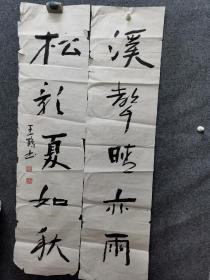 溪聲晴亦雨
松影夏如秋